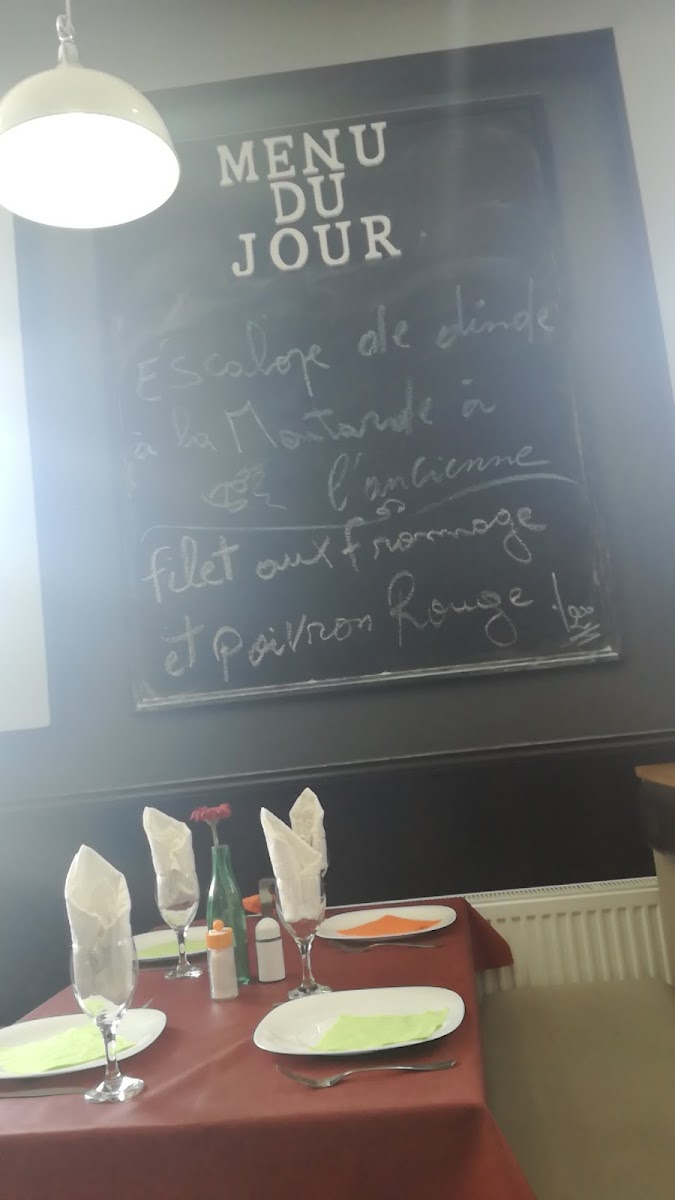 MENU
DU
JOUR
Escalope de dinde
à la Moutarde à
l'ancienne
filet aux fromage
et poivron Rouge !